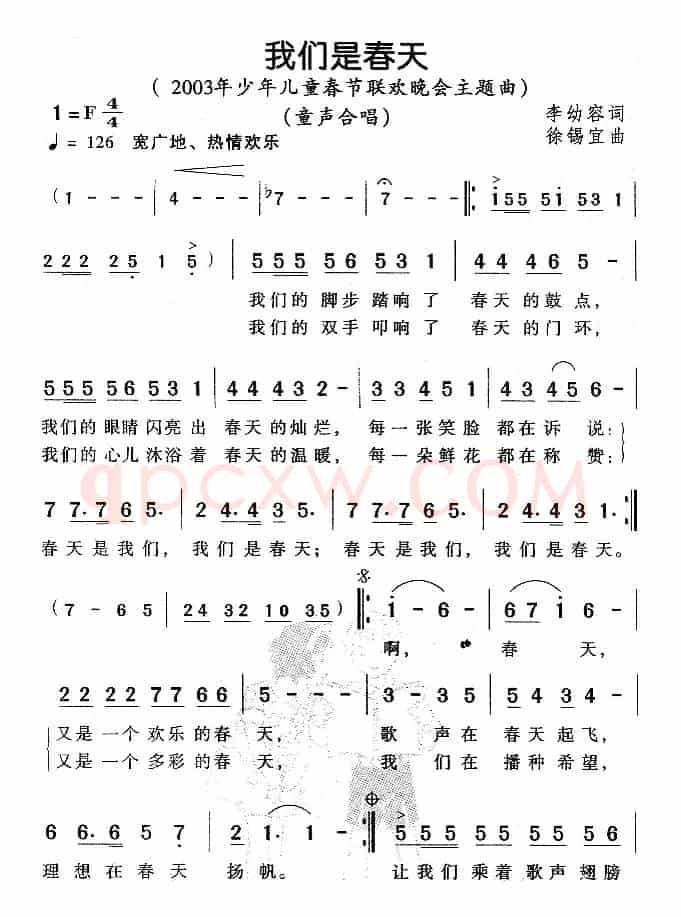 我们是春天
( 2003年少年儿童春节联欢晚会主题曲)
(童声合唱)
1=F 4/4
♩= 126 宽广地、热情欢乐
李幼容词
徐锡宜曲
(1 - - - | 4 - - - | ♭7 - - - | 7 - - - |: i55 5i 53 1
222 25 1 5) | 555 56 53 1 | 44 46 5 -
我们的 脚步 踏响 了 春天 的鼓 点,
我们的 双手 叩响 了 春天 的门 环,
555 56 53 1 | 44 43 2 - | 33 45 1 | 43 45 6
我们的 眼睛 闪亮 出 春天 的灿 烂, 每一 张笑 脸 都在 诉 说:
我们的 心儿 沐浴 着 春天 的温 暖, 每一 朵鲜 花 都在 称 赞:
qpcxw.COM
7 7. 7 6 5. | 2 4. 4 3 5. | 7 7. 7 6 5. | 2 4. 4 3 1. :|
春天是我们, 我们是春天; 春天是我们, 我们是春天。
(7 - 6 5 | 24 32 10 35) |: i - 6 - | 67 i -
啊, 春 天,
22 22 77 66 | 5 - - - | 3 - 3 - | 5 34 -
又是 一个 欢乐 的春 天, 歌 声在 春天 起飞,
又是 一个 多彩 的春 天, 我 们在 播种 希望,
6 6. 6 5 7 | 2 1. 1 - :| 555 55 55 55
理想在春天 扬帆。 让我们 乘着 歌声 翅膀